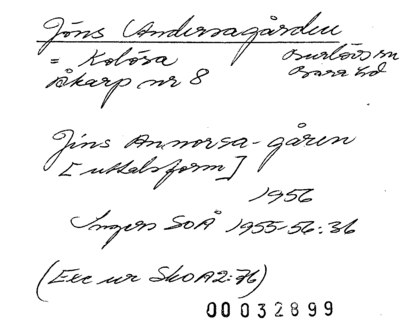 Jöns Andersagården
= Kolösa Burlövs sn
Åkarp nr 8 Bara hd
Jins Annorsa-gåren
[uttalsform]
1956
Ingers SOÅ 1955-56:36
(Exc ur SkOA2:76)
00032899